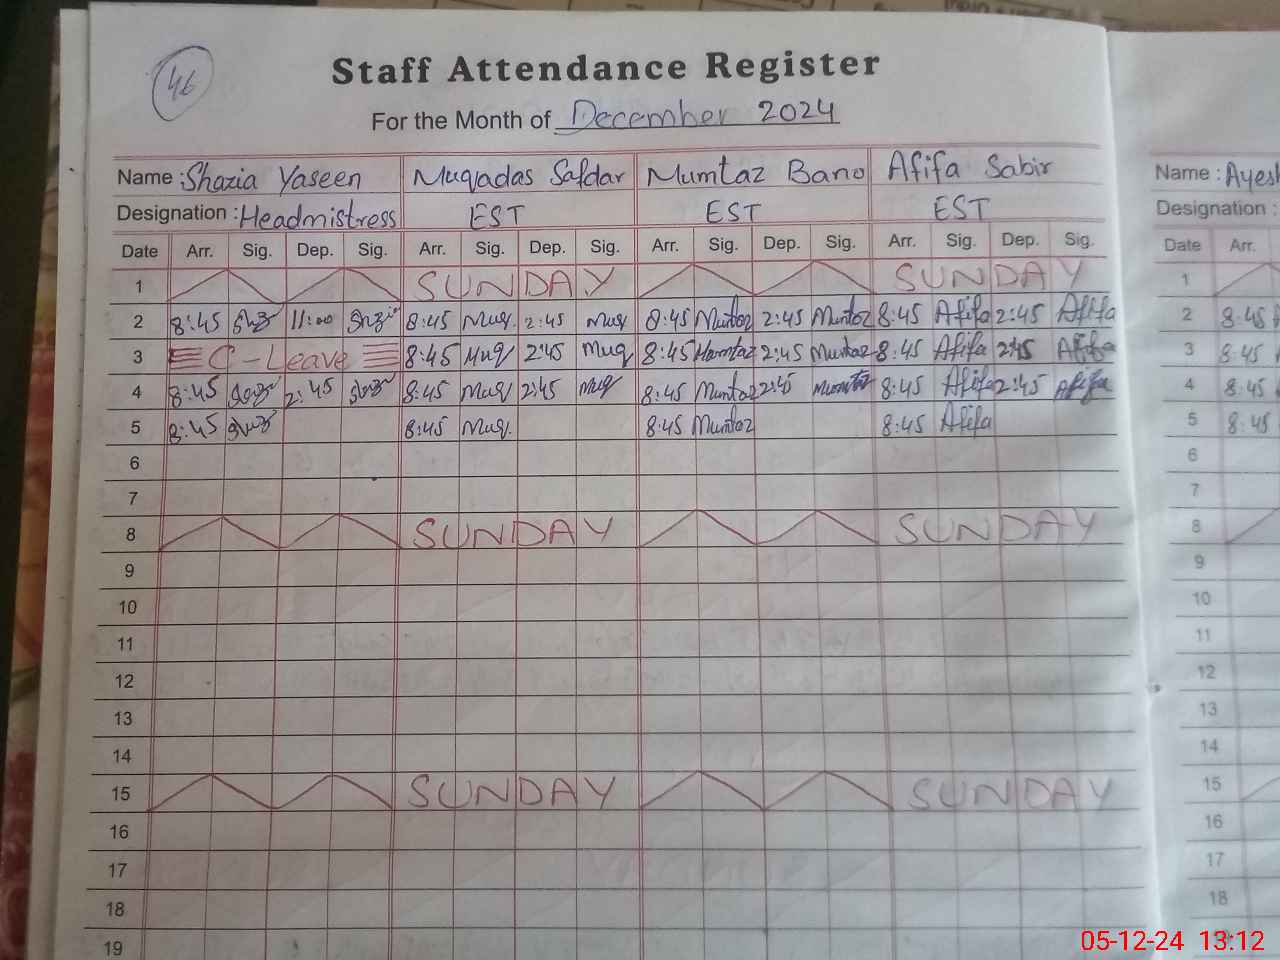 46
Staff Attendance Register
For the Month of December 2024
Name : Shazia Yaseen Muqadas Safdar Mumtaz Bano Afifa Sabir Name :
Designation : Headmistress EST EST EST Designation :
Date Arr. Sig. Dep. Sig. Arr. Sig. Dep. Sig. Arr. Sig. Dep. Sig. Arr. Sig. Dep. Sig. Date Arr.
1 SUNDAY SUNDAY 1
2 8:45 11:00 8:45 Muq. 2:45 Muq 8:45 Mumtaz 2:45 Mumtaz 8:45 Afifa 2:45 Afifa 2 8:45
3 C-Leave 8:45 Muq 2:45 Muq 8:45 Mumtaz 2:45 Mumtaz 8:45 Afifa 2:45 Afifa 3 8:45
4 8:45 2:45 8:45 Muq 2:45 Muq 8:45 Mumtaz 2:45 Mumtaz 8:45 Afifa 2:45 Afifa 4 8:45
5 8:45 8:45 Muq. 8:45 Mumtaz 8:45 Afifa 5 8:45
6 6
7 7
8 SUNDAY SUNDAY 8
9 9
10 10
11 11
12 12
13 13
14 14
15 SUNDAY SUNDAY 15
16 16
17 17
18 18
19
05-12-24 13:12